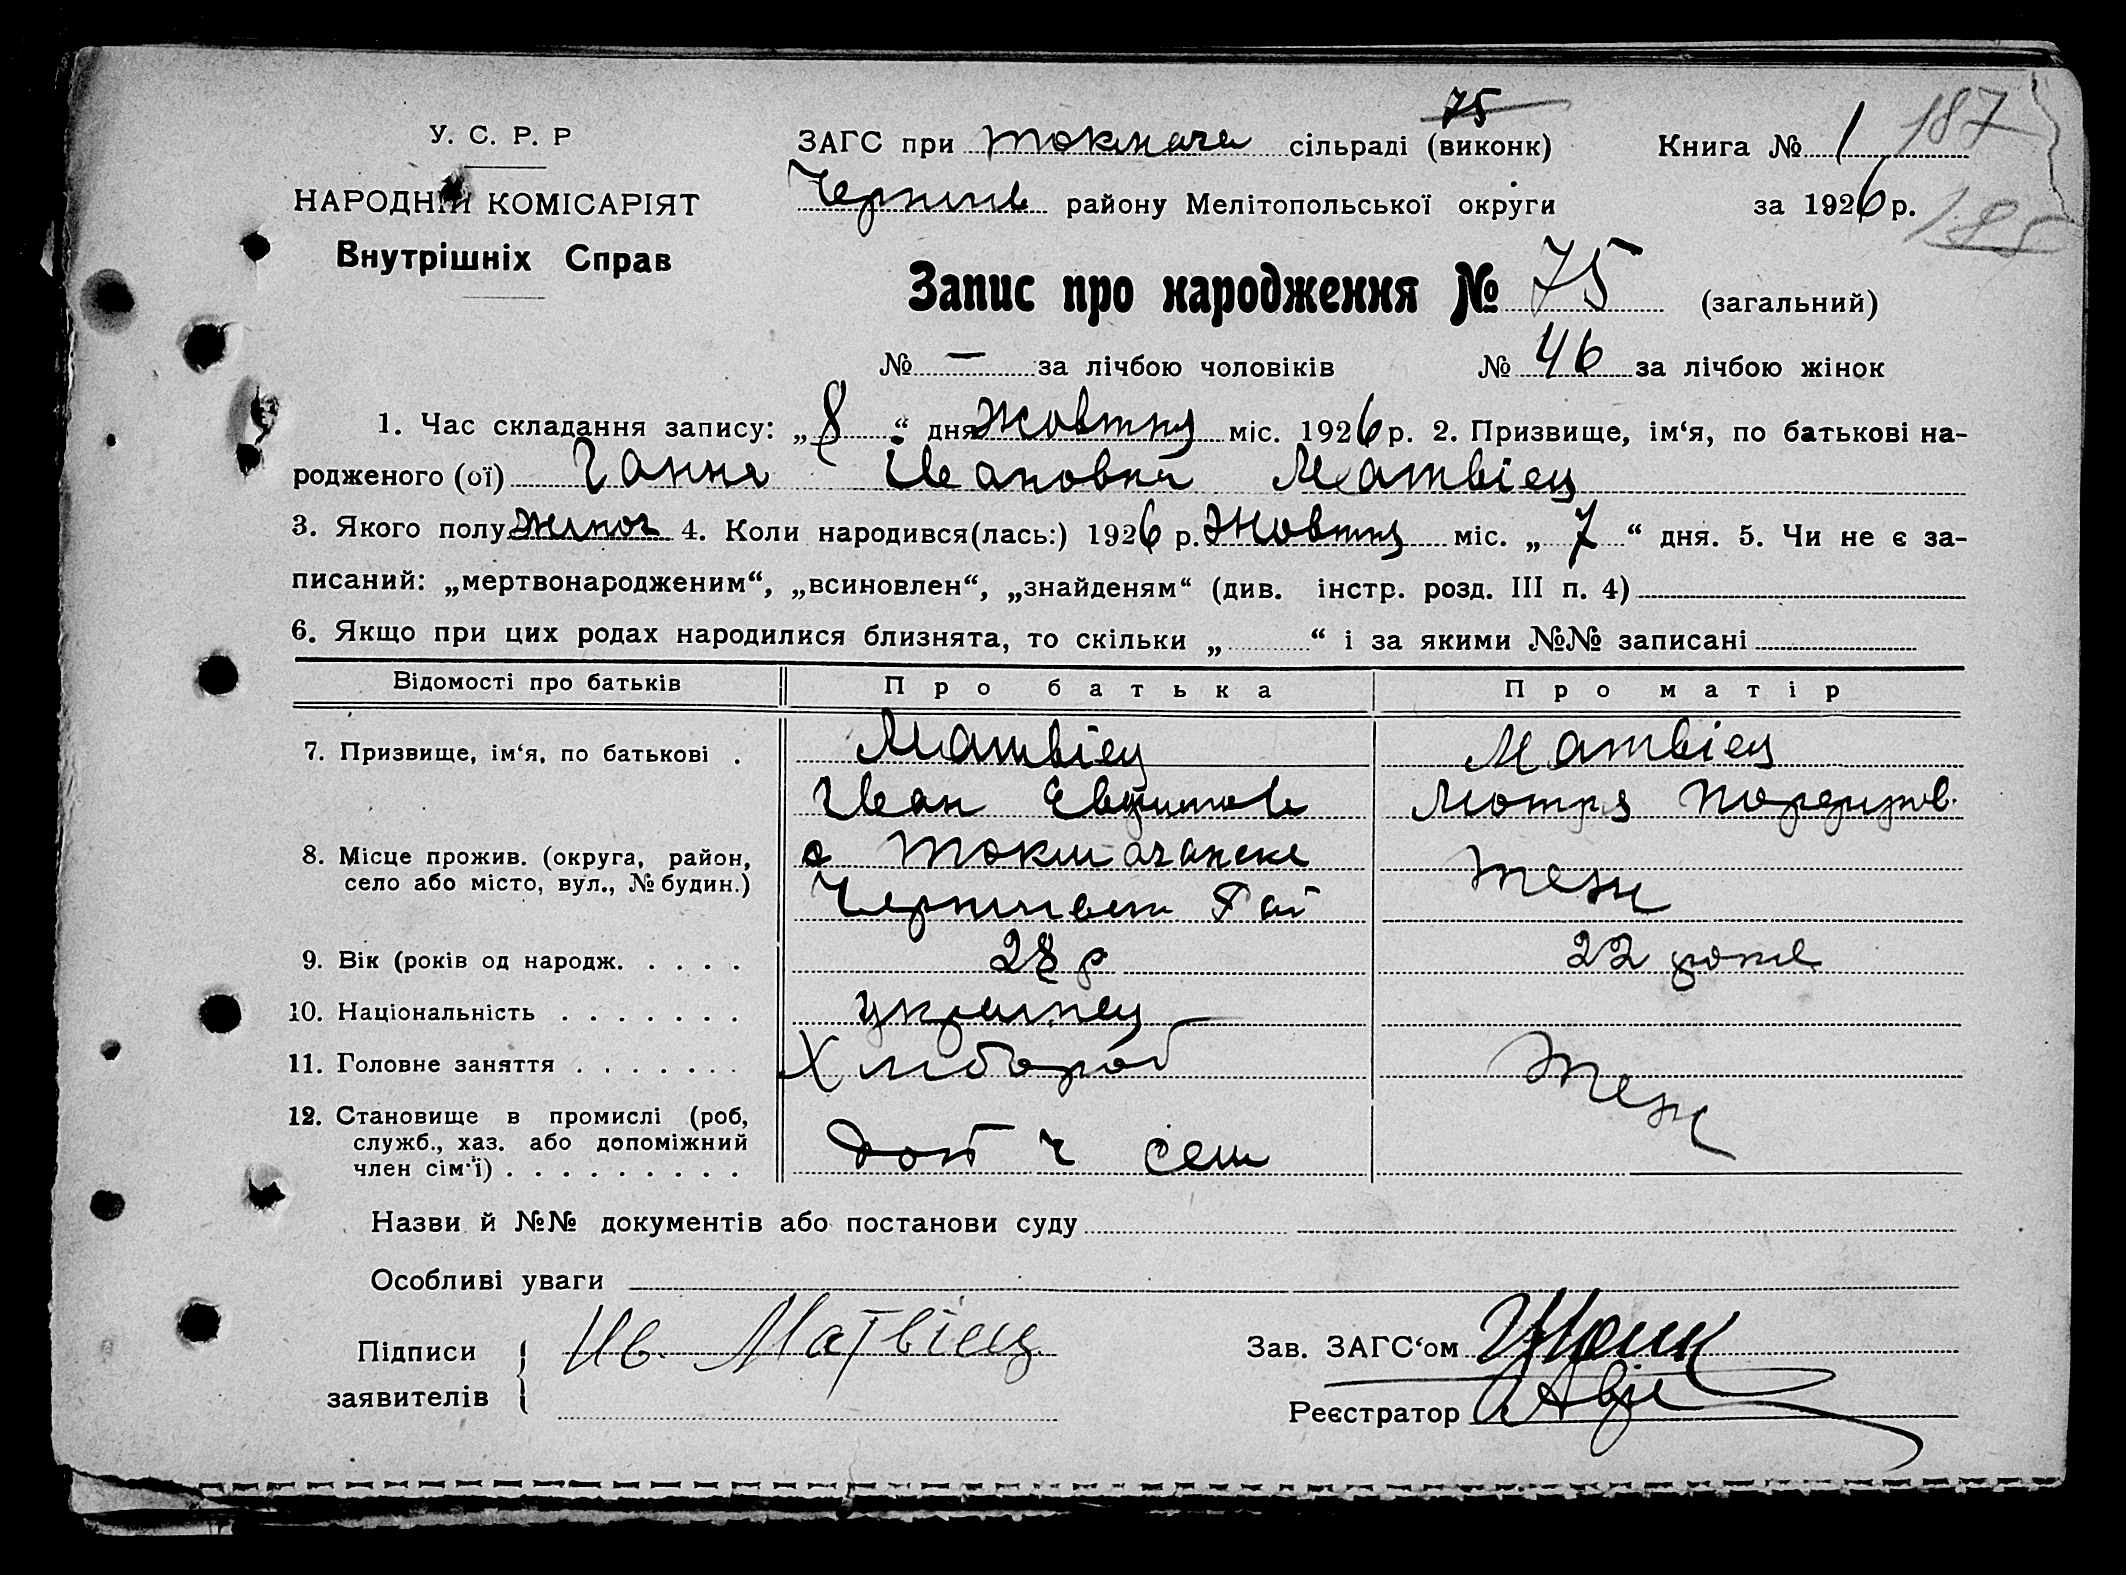 75
У. С. Р. Р
ЗАГС при Токмача сільраді (виконк)
Книга № 1 187
НАРОДНІЙ КОМІСАРІЯТ
Чернигів району Мелітопольської округи
за 1926 р.
185
Внутрішніх Справ
Запис про народження № 75 (загальний)
№ — за лічбою чоловіків № 46 за лічбою жінок
1. Час складання запису: „8“ дня Жовтня міс. 1926 р. 2. Призвище, ім‘я, по батькові на-
родженого (ої) Ганна Івановна Матвіец
3. Якого полу жіноч 4. Коли народився(лась:) 1926 р. Жовтня міс. „7“ дня. 5. Чи не є за-
писаний: „мертвонародженим“, „всиновлен“, „знайденям“ (див. інстр. розд. III п. 4)
6. Якщо при цих родах народилися близнята, то скільки „ “ і за якими №№ записані
Відомості про батьків Про батька Про матір
7. Призвище, ім‘я, по батькові . Матвіец Матвіец
Іван Мотря
8. Місце прожив. (округа, район, с Токмачанске теж
село або місто, вул., № будин.) Рай
9. Вік (років од народж. . . . . 28 р 22 років
10. Національність . . . . . . . українец
11. Головне заняття . . . . . . . Хлибороб теж
12. Становище в промислі (роб,
служб., хаз. або допоміжний
член сім‘ї) . . . . . . . . . доп ч сем
Назви й №№ документів або постанови суду
Особливі уваги
Підписи Ив. Матвіец Зав. ЗАГС‘ом
заявителів Реєстратор